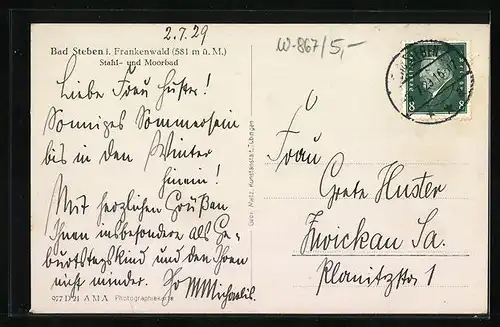 2.7.29
W-867/5,-
Bad Steben i. Frankenwald (581 m ü. M.)
Stahl- und Moorbad
Liebe Frau Huster!
Sonniges Sommersein
bis in den Winter
hinein!
Mit herzlichen Grüßen
Ihnen insbesondere als Ge-
burtstagskind und den Ihren
nicht minder. Ihr MMichaelis.
977 D 21 A M A Photographiekarte
Gebr. Metz, Kunstanstalt, Tübingen
Frau
Grete Huster
Zwickau Sa.
Planitzstr 1
8 8